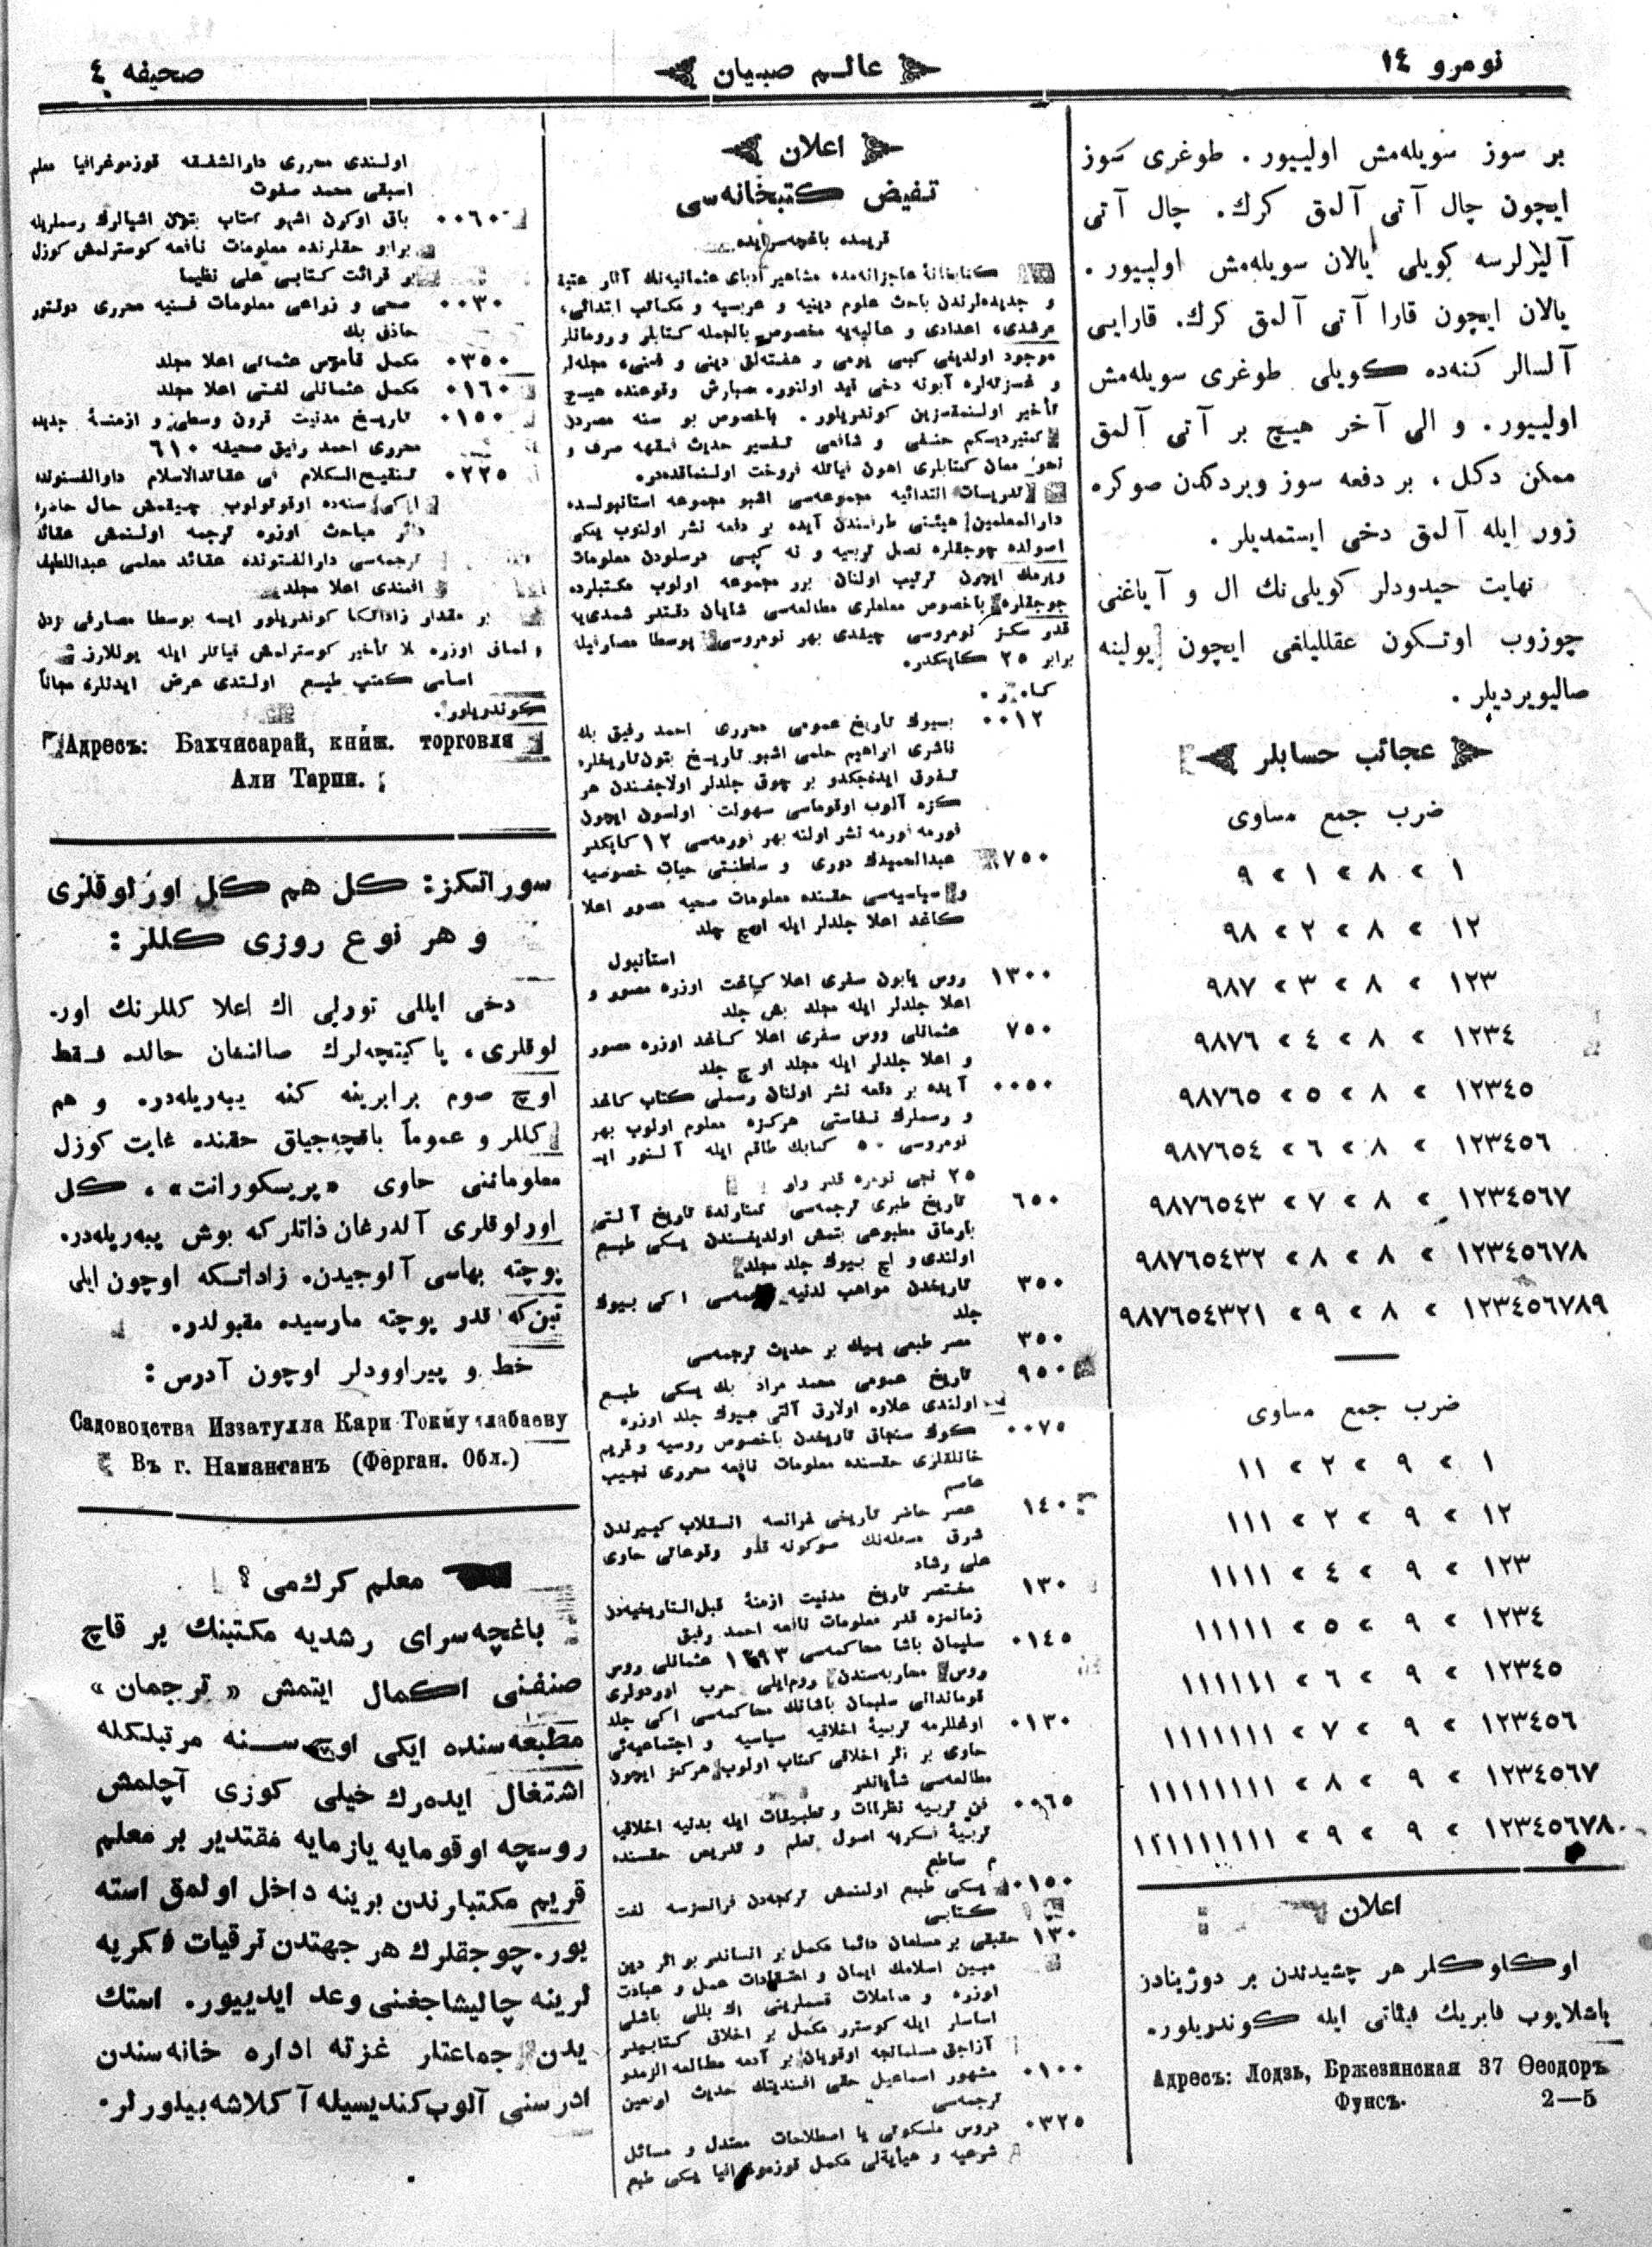 نومرو ١٤
عالم صبيان
صحيفه ٤
بر سوز سويله‌مش اولييور. طوغرى سوز
ايچون چال آتى آلمق كرك. چال آتى
آليرلرسه كويلى يالان سويله‌مش اولييور.
يالان ايچون قارا آتى آلمق كرك. قارايى
آلسالر كنه‌ده كويلى طوغرى سويله‌مش
اولييور. و الى آخر هيچ بر آتى آلمق
ممكن دكل، بر دفعه سوز ويردكدن صوكره
زور ايله آلمق دخى ايستمديلر.
نهايت حيدودلر كويلى‌نك ال و آياغنى
چوزوب اوتكون عقلليلغى ايچون يولينه
صاليويرديلر.
عجائب حسابلر
ضرب جمع مساوى
١ > ٨ > ١ > ٩
١٢ > ٨ > ٢ > ٩٨
١٢٣ > ٨ > ٣ > ٩٨٧
١٢٣٤ > ٨ > ٤ > ٩٨٧٦
١٢٣٤٥ > ٨ > ٥ > ٩٨٧٦٥
١٢٣٤٥٦ > ٨ > ٦ > ٩٨٧٦٥٤
١٢٣٤٥٦٧ > ٨ > ٧ > ٩٨٧٦٥٤٣
١٢٣٤٥٦٧٨ > ٨ > ٨ > ٩٨٧٦٥٤٣٢
١٢٣٤٥٦٧٨٩ > ٨ > ٩ > ٩٨٧٦٥٤٣٢١
ضرب جمع مساوى
١ > ٩ > ٢ > ١١
١٢ > ٩ > ٢ > ١١١
١٢٣ > ٩ > ٤ > ١١١١
١٢٣٤ > ٩ > ٥ > ١١١١١
١٢٣٤٥ > ٩ > ٦ > ١١١١١١
١٢٣٤٥٦ > ٩ > ٧ > ١١١١١١١
١٢٣٤٥٦٧ > ٩ > ٨ > ١١١١١١١١
١٢٣٤٥٦٧٨ > ٩ > ٩ > ١١١١١١١١١
اعلان
هر چشيدندن بر دوژينادن
باشلايوب فابريك فيئاتى ايله كوندريلور.
Адресъ: Лодзь, Бржезинская 37 Ѳеодоръ
Фунсъ. 2—5
اعلان
تفيض كتبخانه‌سى
قريمده باغچه‌سرايده
كتابخانهٔ عاجزانه‌مده مشاهير ادباى عثمانيه‌نك آثار عتيقه
و جديده‌لرندن باحث علوم دينيه و عربيه و مكاتب ابتدائى،
رشدى، اعدادى و عاليه‌يه مخصوص بالجمله كتابلر و رومانلر
موجود اولديغى كبى يومى و هفته‌لق دينى و فنى، مجله‌لر
و غزته‌لره آبونه دخى قيد اولنور. سپارش وقوعنده هيچ
تأخير اولنمقسزين كوندريلور. باخصوص بو سنه مصردن
حنفى و شافعى تفسير حديث فقه صرف و
نحو معان كتابلرى اهون فيأتله فروخت اولنماقده‌در.
تدريسات ابتدائيه مجموعه‌سى اشبو مجموعه استانبولده
دارالمعلمين هيئتى طرفندن آيده بر دفعه نشر اولنوب يكى
اصولده چوجقلره نصل تربيه و نه كبى درسلردن معلومات
ويرمك ايچون ترتيب اولنان بر مجموعه اولوب مكتبلرده
چوجقلره باخصوص معلملرى مطالعه‌سى شايان دقتدر شمدى‌يه
قدر سكز نومروسى چيقدى بهر نومروسى پوسطا مصارفيله
برابر ٢٥ كاپكدر.
٠٠١٢ بيوك تاريخ عمومى محررى احمد رفيق بك
ناشرى ابراهيم حلمى اشبو تاريخ بتون تاريخلره
تفوق ايده‌جكدر بر چوق جلدلر اولاجغندن هر
كزه آلوب اوقوماسى سهولت اولسون ايچون
فورمه فورمه نشر اولنه بهر فورمه‌سى ١٢ كاپكدر
٧٥٠ عبدالحميدك دورى و سلطنتى حيات خصوصيه
و سياسيه‌سى حقنده معلومات صحيه مصور اعلا
كاغد اعلا جلدلر ايله اوچ جلد
استانبول
١٣٠٠ روس ياپون سفرى اعلا كاغد اوزره مصور و
اعلا جلدلر ايله مجلد بش جلد
٧٥٠ عثمانلى روس سفرى اعلا كاغد اوزره مصور
و اعلا جلدلر ايله مجلد اوچ جلد
٠٠٥٠ آيده بر دفعه نشر اولنان رسملى كتاب كاغد
و رسملرك نفاستى هركزه معلوم اولوب بهر
نومروسى ٥٠ كاپك طاقم ايله آلنور ايسه
٢٥ نجى نومره قدر وار
٦٥٠ تاريخ طبرى ترجمه‌سى
اولندى و اوچ بيوك جلد مجلد
٣٥٠ تاريخدن مواهب لدنيه ترجمه‌سى ايكى بيوك
جلد
٣٥٠ مصر طبعى بيك بر حديث ترجمه‌سى
٩٥٠ تاريخ عمومى محمد مراد بك يكى طبع
اولندى علاوه اولارق آلتى بيوك جلد اوزره
٠٠٧٥ كوك سنجاق تاريخدن باخصوص روسيه و قريم
خانلقلرى حقنده معلومات نافعه محررى نجيب
عاصم
١٤٠ عصر حاضر تاريخى فرانسه انقلاب كبيرندن
شرق مسئله‌نك صوكونه قدر وقوعاتى حاوى
على رشاد
١٣٠ مختصر تاريخ مدنيت ازمنهٔ قبل‌التاريخيه‌دن
زمانمزه قدر معلومات نافعه احمد رفيق
٠١٤٥ سليمان پاشا محاكمه‌سى ١٢٩٣ عثمانلى روس
محاربه‌سندن روم‌ايلى حرب اوردولرى
قوماندانى سليمان پاشانك محاكمه‌سى ايكى جلد
٠١٣٠ اوغللرمه تربيهٔ اخلاقيه سياسيه و اجتماعيه‌ئى
حاوى بر اثر اخلاقى كتاب اولوب هركز ايچون
مطالعه‌سى شاياندر
٠٩٦٥ فن تربيه نظريات و تطبيقات ايله بدنيه اخلاقيه
تربيهٔ فكريه اصول تعلم و تدريس حقنده
م ساطع
٠١٥٠ يكى طبع اولنمش تركجه‌دن فرانسزسه لغت
كتابى
١٣٠ حقيقى بر مسلمان دائما مكمل بر انساندر بو اثر دين
مبين اسلامك ايمان و اعتقادات عمل و عبادت
اوزره و معاملات قسملرينى اك بللى باشلى
اساسلر ايله كوسترر مكمل بر اخلاق كتابيدر
آزاجق مسلمانجه اوقويان بر آدمه مطالعه الزمدر
٠١٠٠ مشهور اسماعيل حقى افندينك حديث اربعين
ترجمه‌سى
٠٣٢٥ دروس يا اصطلاحات معتدل و مسائل
شرعيه و مكمل قوزموغرافيا يكى طبع
اولندى محررى دارالشفقه قوزموغرافيا معلم
اسبقى محمد صفوت
٠٠٦٠ باق اوكرن اشبو كتاب بتون اشيالرك رسملريله
برابر حقلرنده معلومات نافعه كوسترلمش كوزل
بر قرائت كتابى على نظيما
٠٠٣٠ صحى و زراعى معلومات فنيه محررى دوقتور
حاذق بك
٠٣٥٠ مكمل قاموس عثمانى اعلا مجلد
٠١٦٠ مكمل عثمانلى لغتى اعلا مجلد
٠١٥٠ تاريخ مدنيت قرون وسطى و ازمنهٔ جديده
محررى احمد رفيق صحيفه ٦١٠
٠٢٢٥ تنقيح الكلام فى عقائد الاسلام دارالفنونده
سنه‌ده اوقوتولوب چيقمش حال حاضره
دائر مباحث اوزره ترجمه اولنمش عقائد
ترجمه‌سى دارالفنونده عقائد معلمى عبداللطيف
افندى اعلا مجلد
بر مقدار زاداتكا كوندريلور ايسه پوسطا مصارفى بزدن
اولماق اوزره بلا تأخير كوسترلمش فيأتلر ايله يوللارز
اسامى كتب طبع اولندى عرض ايدنلره مجاناً
كوندريلور.
Адресъ: Бахчисарай, книж. торговля
Али Тарпи.
سوراتكز: كل هم كل اورلوقلرى
و هر نوع روزى كللر:
دخى ايللى تورلى اك اعلا كللرنك اور-
لوقلرى، پاكيتچه‌لرك صالنغان حالده فقط
اوچ صوم برابرينه كنه ييه‌ريله‌در. و هم
كللر و عموماً باقچه‌جياق حقنده غايت كوزل
معلوماتنى حاوى «پريسكورانت»، كل
اورلوقلرى آلدرغان ذاتلركه بوش ييه‌ريله‌در.
پوچته بهاسى آلوجيدن. زاداتكه اوچون ايلى
تين‌كه قدر پوچته مارسيده مقبولدر.
خط و پيراوودلر اوچون آدرس:
Садоводства Иззатулла Кари Токмухамабаеву
Въ г. Наманганъ (Ферган. Обл.)
معلم كرك‌مى؟
باغچه‌سراى رشديه مكتبنك بر قاچ
صنفنى اكمال ايتمش «ترجمان»
مطبعه‌سنده ايكى اوچ سنه مرتبلكله
اشتغال ايده‌رك خيلى كوزى آچلمش
روسچه اوقومايه يازمايه مقتدير بر معلم
قريم مكتبلرندن برينه داخل اولمق استه
يور. چوجقلرك هر جهتدن ترقيات فكريه
لرينه چاليشاجغنى وعد ايدييور. استك
يدن جماعتلر غزته اداره خانه‌سندن
ادرسنى آلوب كنديسيله آكلاشه‌بيلورلر.